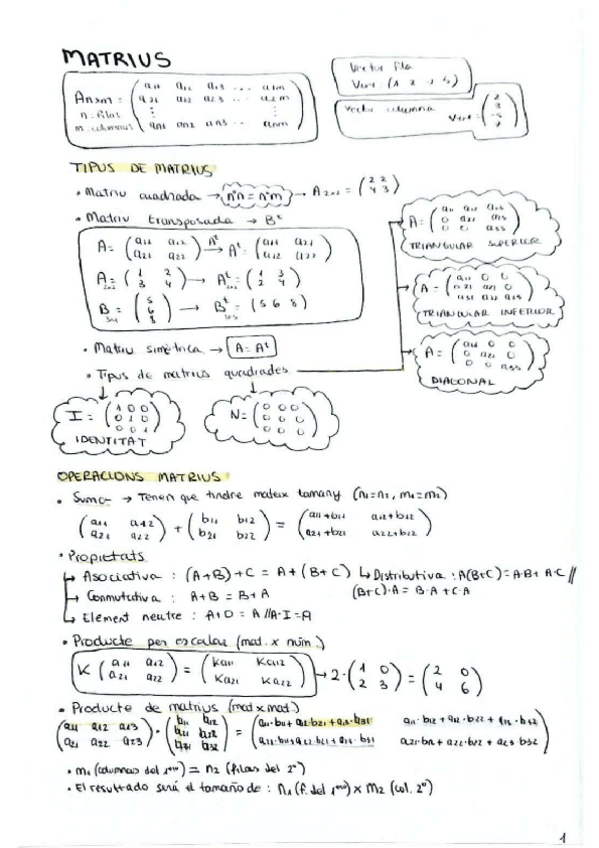 MATRIUS
Anxm = (a11 a12 a13 ... a1m
a21 a22 a23 ... a2m
⋮ ⋮ ⋮
an1 an2 an3 ... anm)
n = filas
m = columnas
Vector fila
Vector columna
TIPUS DE MATRIUS
• Matriu cuadrada → (nºn = nºm) → A2x2 = (2 2
4 3)
• Matriu transposada → Bᵗ
A = (a11 a12
a21 a22) Aᵗ→ Aᵗ = (a11 a21
a12 a22)
A2x2 = (1 2
3 4) → Aᵗ2x2 = (1 3
2 4)
B3x1 = (5
6
8) → Bᵗ1x3 = (5 6 8)
• Matriu simètrica → A = Aᵗ
• Tipus de matrius quadrades
A = (a11 a12 a13
0 a22 a23
0 0 a33)
TRIANGULAR SUPERIOR
A = (a11 0 0
a21 a22 0
TRIANGULAR INFERIOR
A = (a11 0 0
0 a22 0
0 0 a33)
DIAGONAL
I = (1 0 0
0 1 0
0 0 1)
IDENTITAT
N = (0 0 0
0 0 0
0 0 0)
OPERACIONS MATRIUS
• Suma → Tenen que tindre mateix tamany (n1=n2, m1=m2)
(a11 a12
a21 a22) + (b11 b12
b21 b22) = (a11+b11 a12+b12
a21+b21 a22+b22)
• Propietats
↳ Asociativa : (A+B)+C = A+(B+C) ↳ Distributiva : A(B+C)=A·B+A·C //
(B+C)·A = B·A+C·A
↳ Conmutativa : A+B = B+A
↳ Element neutre : A+0 = A // A·I = A
• Producte per escalar (mat. x núm.)
K (a11 a12
a21 a22) = (Ka11 Ka12
Ka21 Ka22) → 2·(1 0
2 3) = (2 0
4 6)
• Producte de matrius (mat x mat.)
(a11 a12 a13
a21 a22 a23) · (b11 b12
b21 b22
b31 b32) = (a11·b11+a12·b21+a13·b31 a11·b12+a12·b22+a13·b32
a21·b11+a22·b21+a23·b31 a21·b12+a22·b22+a23·b32)
• m1 (columnas del 1ero) = n2 (filas del 2º)
• El resultado será el tamaño de : n1 (f. del 1ero) x m2 (col. 2º)
1